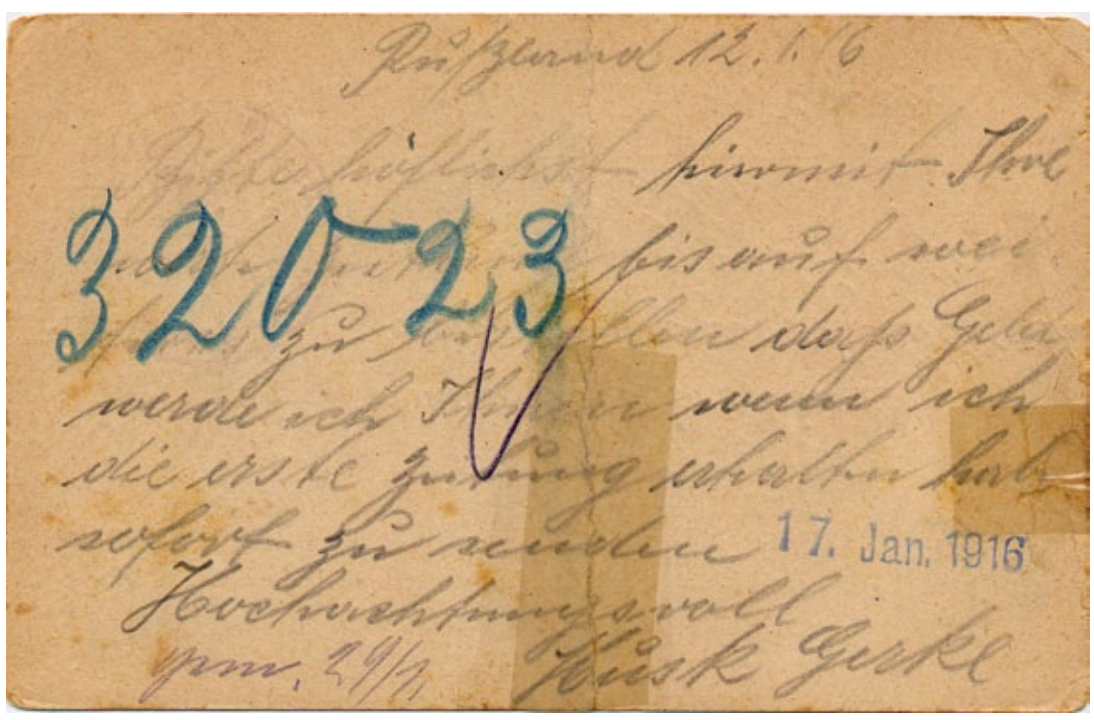 Rußland 12.1.16
Bitte höflichst hiermit Ihre
32023
bis auf wei
zu daß Geld
werde ich Ihnen wenn ich
die erste Zeitung erhalten hab
sofort zu senden
17. Jan. 1916
Hochachtungsvoll
Gerke